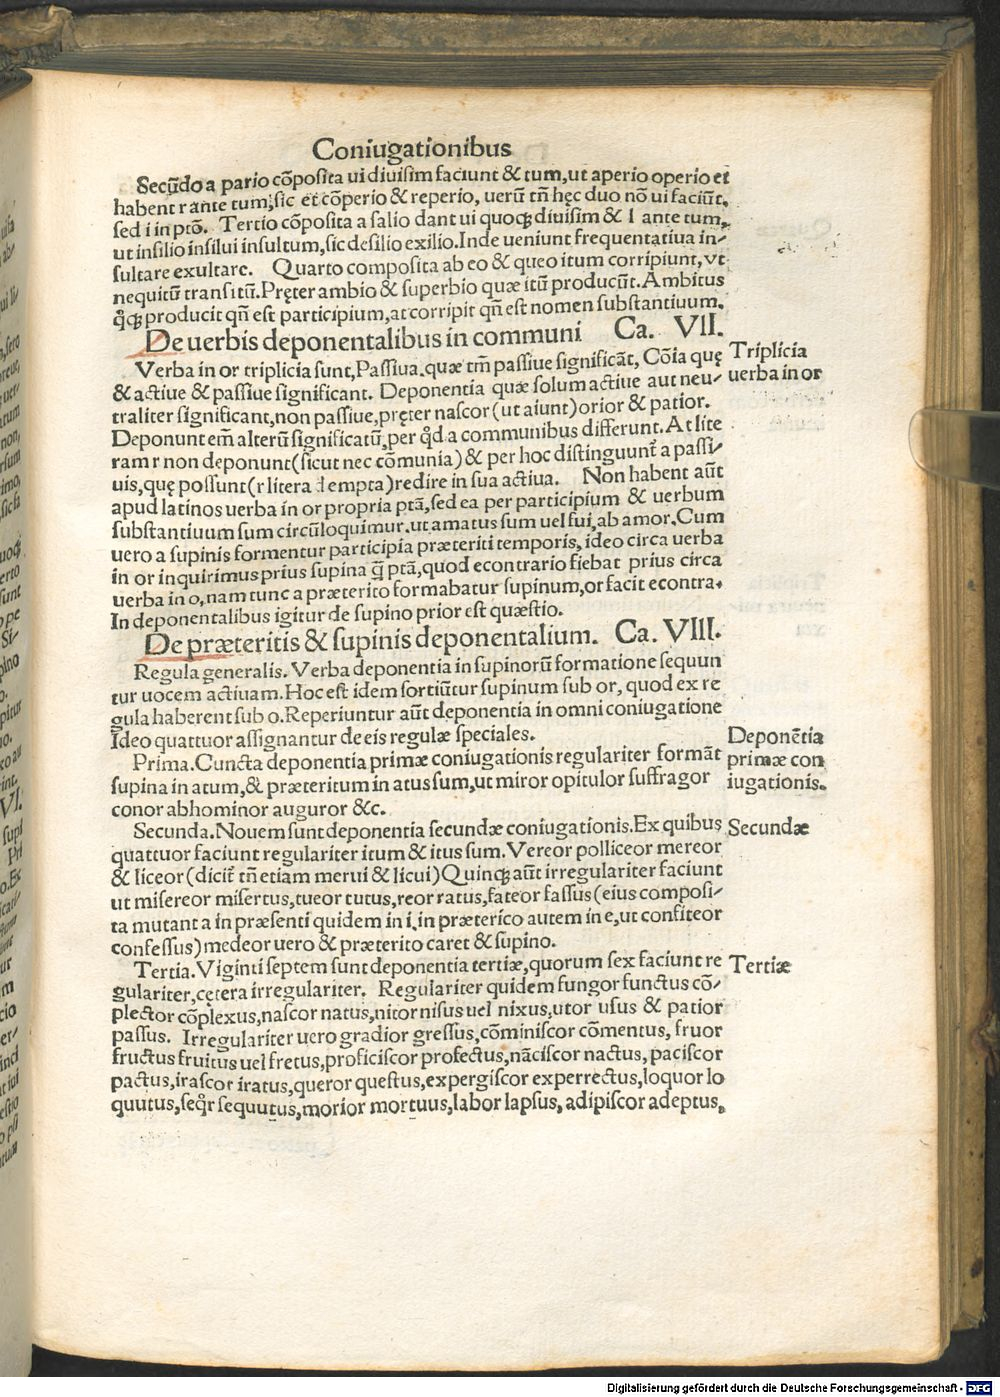 Coniugationibus
Secūdo a pario cōposita ui diuisim faciunt & tum, ut aperio operio et
habent r ante tum, sic et cōperio & reperio, uerū tn̄ hęc duo nō ui faciūt,
sed i in ptō. Tertio cōposita a salio dant ui quoqꝫ diuisim & l ante tum,
ut insilio insilui insultum, sic desilio exilio. Inde ueniunt frequentatiua in⸗
sultare exultare. Quarto composita ab eo & queo itum corripiunt, vt
nequitū transitū. Pręter ambio & superbio quæ itū producūt. Ambitus
q̊qꝫ producit qn̄ est participium, at corripit qn̄ est nomen substantiuum.
De uerbis deponentalibus in communi Ca. VII.
Verba in or triplicia sunt, Passiua. quæ tm̄ passiue significāt, Cōia quę
Triplicia
& actiue & passiue significant. Deponentia quæ solum actiue aut neu⸗
uerba in or
traliter significant, non passiue, pręter nascor (ut aiunt) orior & patior.
Deponunt em̄ alterū significatū, per q̊d a communibus differunt. At lite
ram r non deponunt (sicut nec cōmunia) & per hoc distinguunt̄ a passi⸗
uis, quę possunt (r litera dempta) redire in sua actiua. Non habent aūt
apud latinos uerba in or propria ptā, sed ea per participium & uerbum
substantiuum sum circūloquimur. ut amatus sum uel fui, ab amor. Cum
uero a supinis formentur participia præteriti temporis, ideo circa uerba
in or inquirimus prius supina q̄ ptā, quod econtrario fiebat prius circa
uerba in o, nam tunc a præterito formabatur supinum, or facit econtra.
In deponentalibus igitur de supino prior est quæstio.
De præteritis & supinis deponentalium. Ca. VIII.
Regula generalis. Verba deponentia in supinorū formatione sequun
tur uocem actiuam. Hoc est idem sortiūtur supinum sub or, quod ex re
gula haberent sub o. Reperiuntur aūt deponentia in omni coniugatione
Ideo quattuor assignantur de eis regulæ speciales.
Deponētia
Prima. Cuncta deponentia primæ coniugationis regulariter formāt
primæ con
supina in atum, & præteritum in atus sum, ut miror opitulor suffragor
iugationis.
conor abhominor auguror &c.
Secunda. Nouem sunt deponentia secundæ coniugationis. Ex quibus
Secundæ
quattuor faciunt regulariter itum & itus sum. Vereor polliceor mereor
& liceor (dicit̄ tn̄ etiam merui & licui) Quinqꝫ aūt irregulariter faciunt
ut misereor misertus, tueor tutus, reor ratus, fateor fassus (eius composi⸗
ta mutant a in præsenti quidem in i, in præterico autem in e, ut confiteor
confessus) medeor uero & præterito caret & supino.
Tertia. Viginti septem sunt deponentia tertiæ, quorum sex faciunt re
Tertiæ
gulariter, cętera irregulariter. Regulariter quidem fungor functus cō⸗
plector cōplexus, nascor natus, nitor nisus uel nixus, utor usus & patior
passus. Irregulariter uero gradior gressus, cōminiscor cōmentus, fruor
fructus fruitus uel fretus, proficiscor profectus, nāciscor nactus, paciscor
pactus, irascor iratus, queror questus, expergiscor experrectus, loquor lo
quutus, seq̊r sequutus, morior mortuus, labor lapsus, adipiscor adeptus,
Digitalisierung gefördert durch die Deutsche Forschungsgemeinschaft - DFG